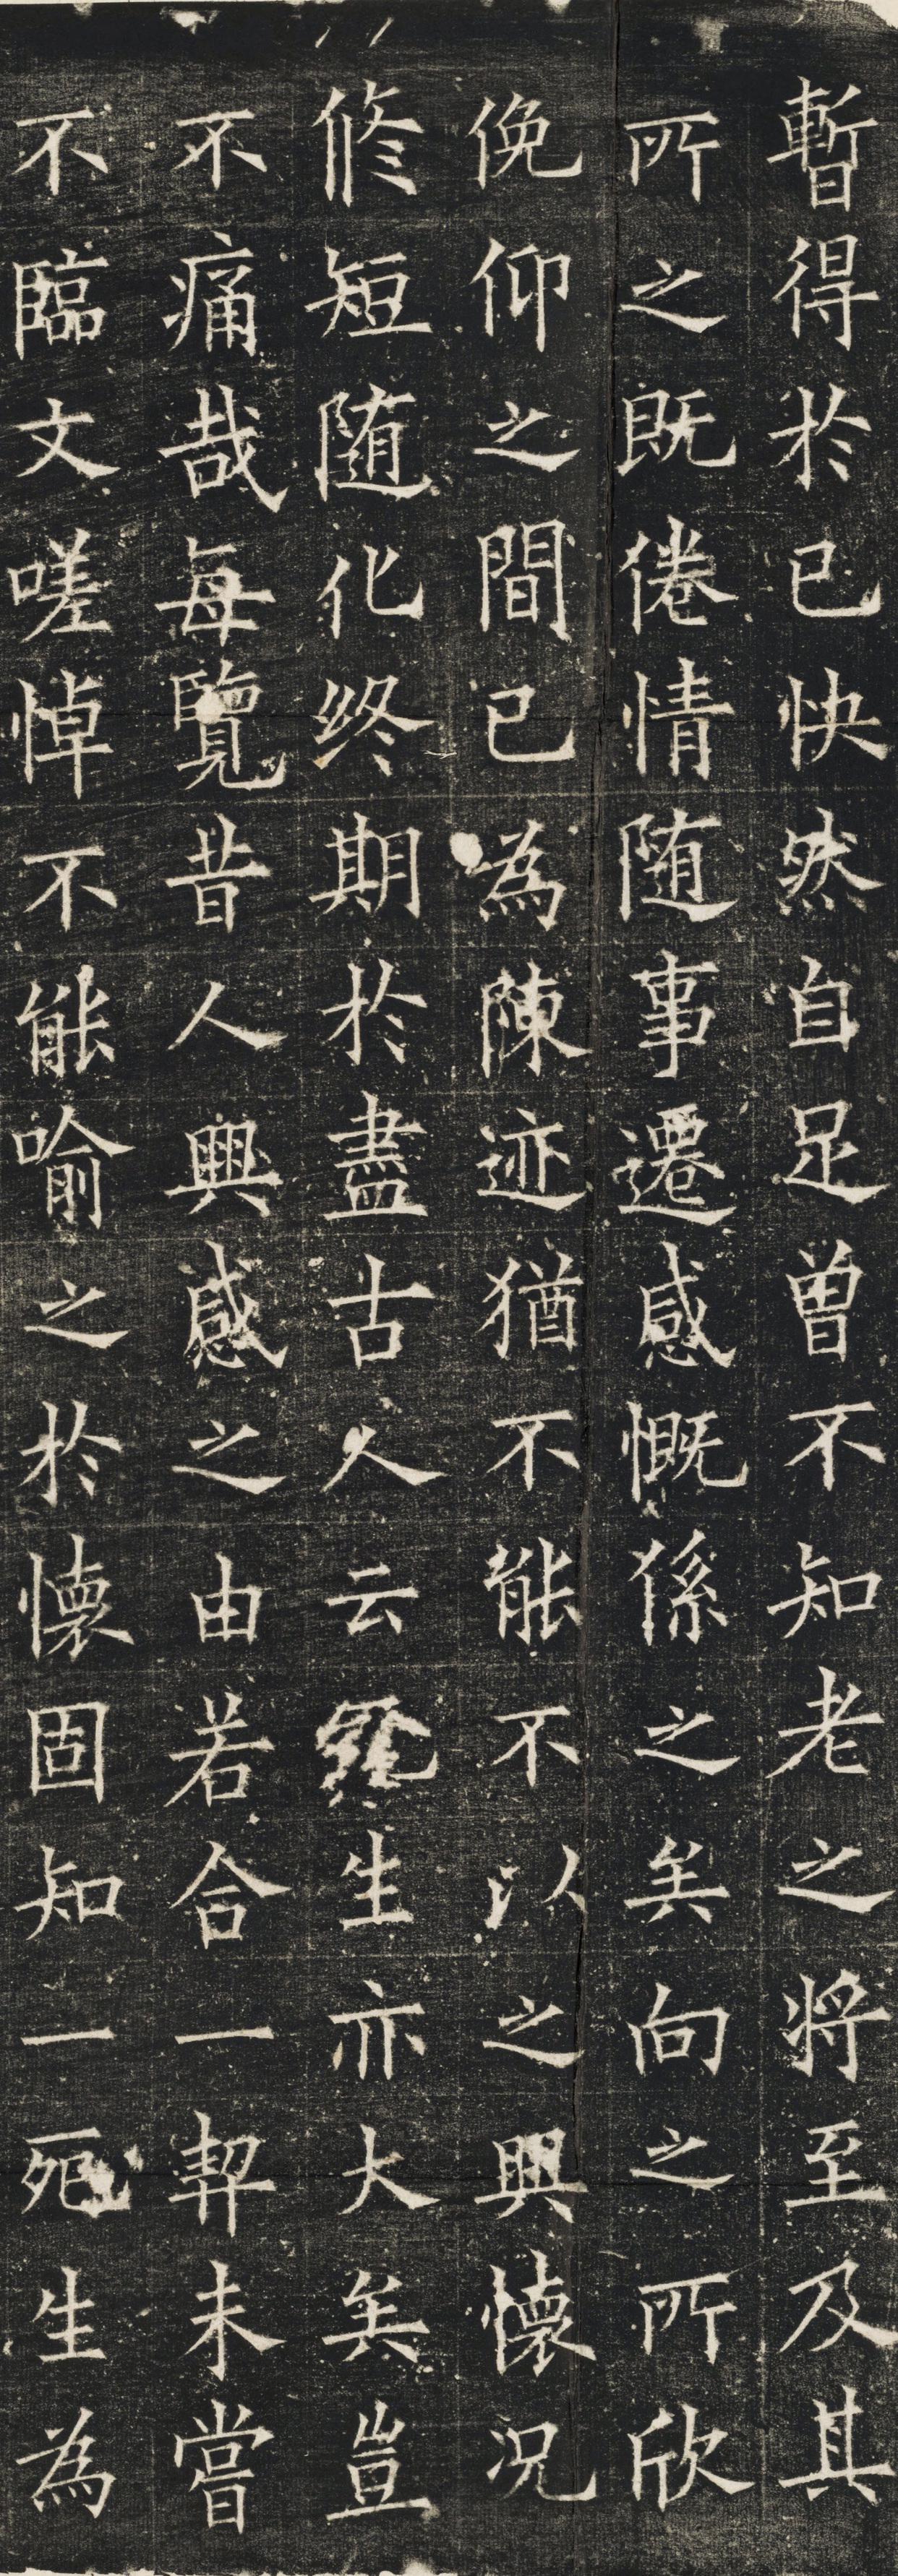 暫得於己快然自足曽不知老之將至及其
所之既倦情随事遷感慨係之矣向之所欣
俛仰之間已為陳迹猶不能不以之興懷況
脩短随化终期於盡古人云死生亦大矣豈
不痛哉每覽昔人興感之由若合一契未嘗
不臨文嗟悼不能喻之於懷固知一死生為